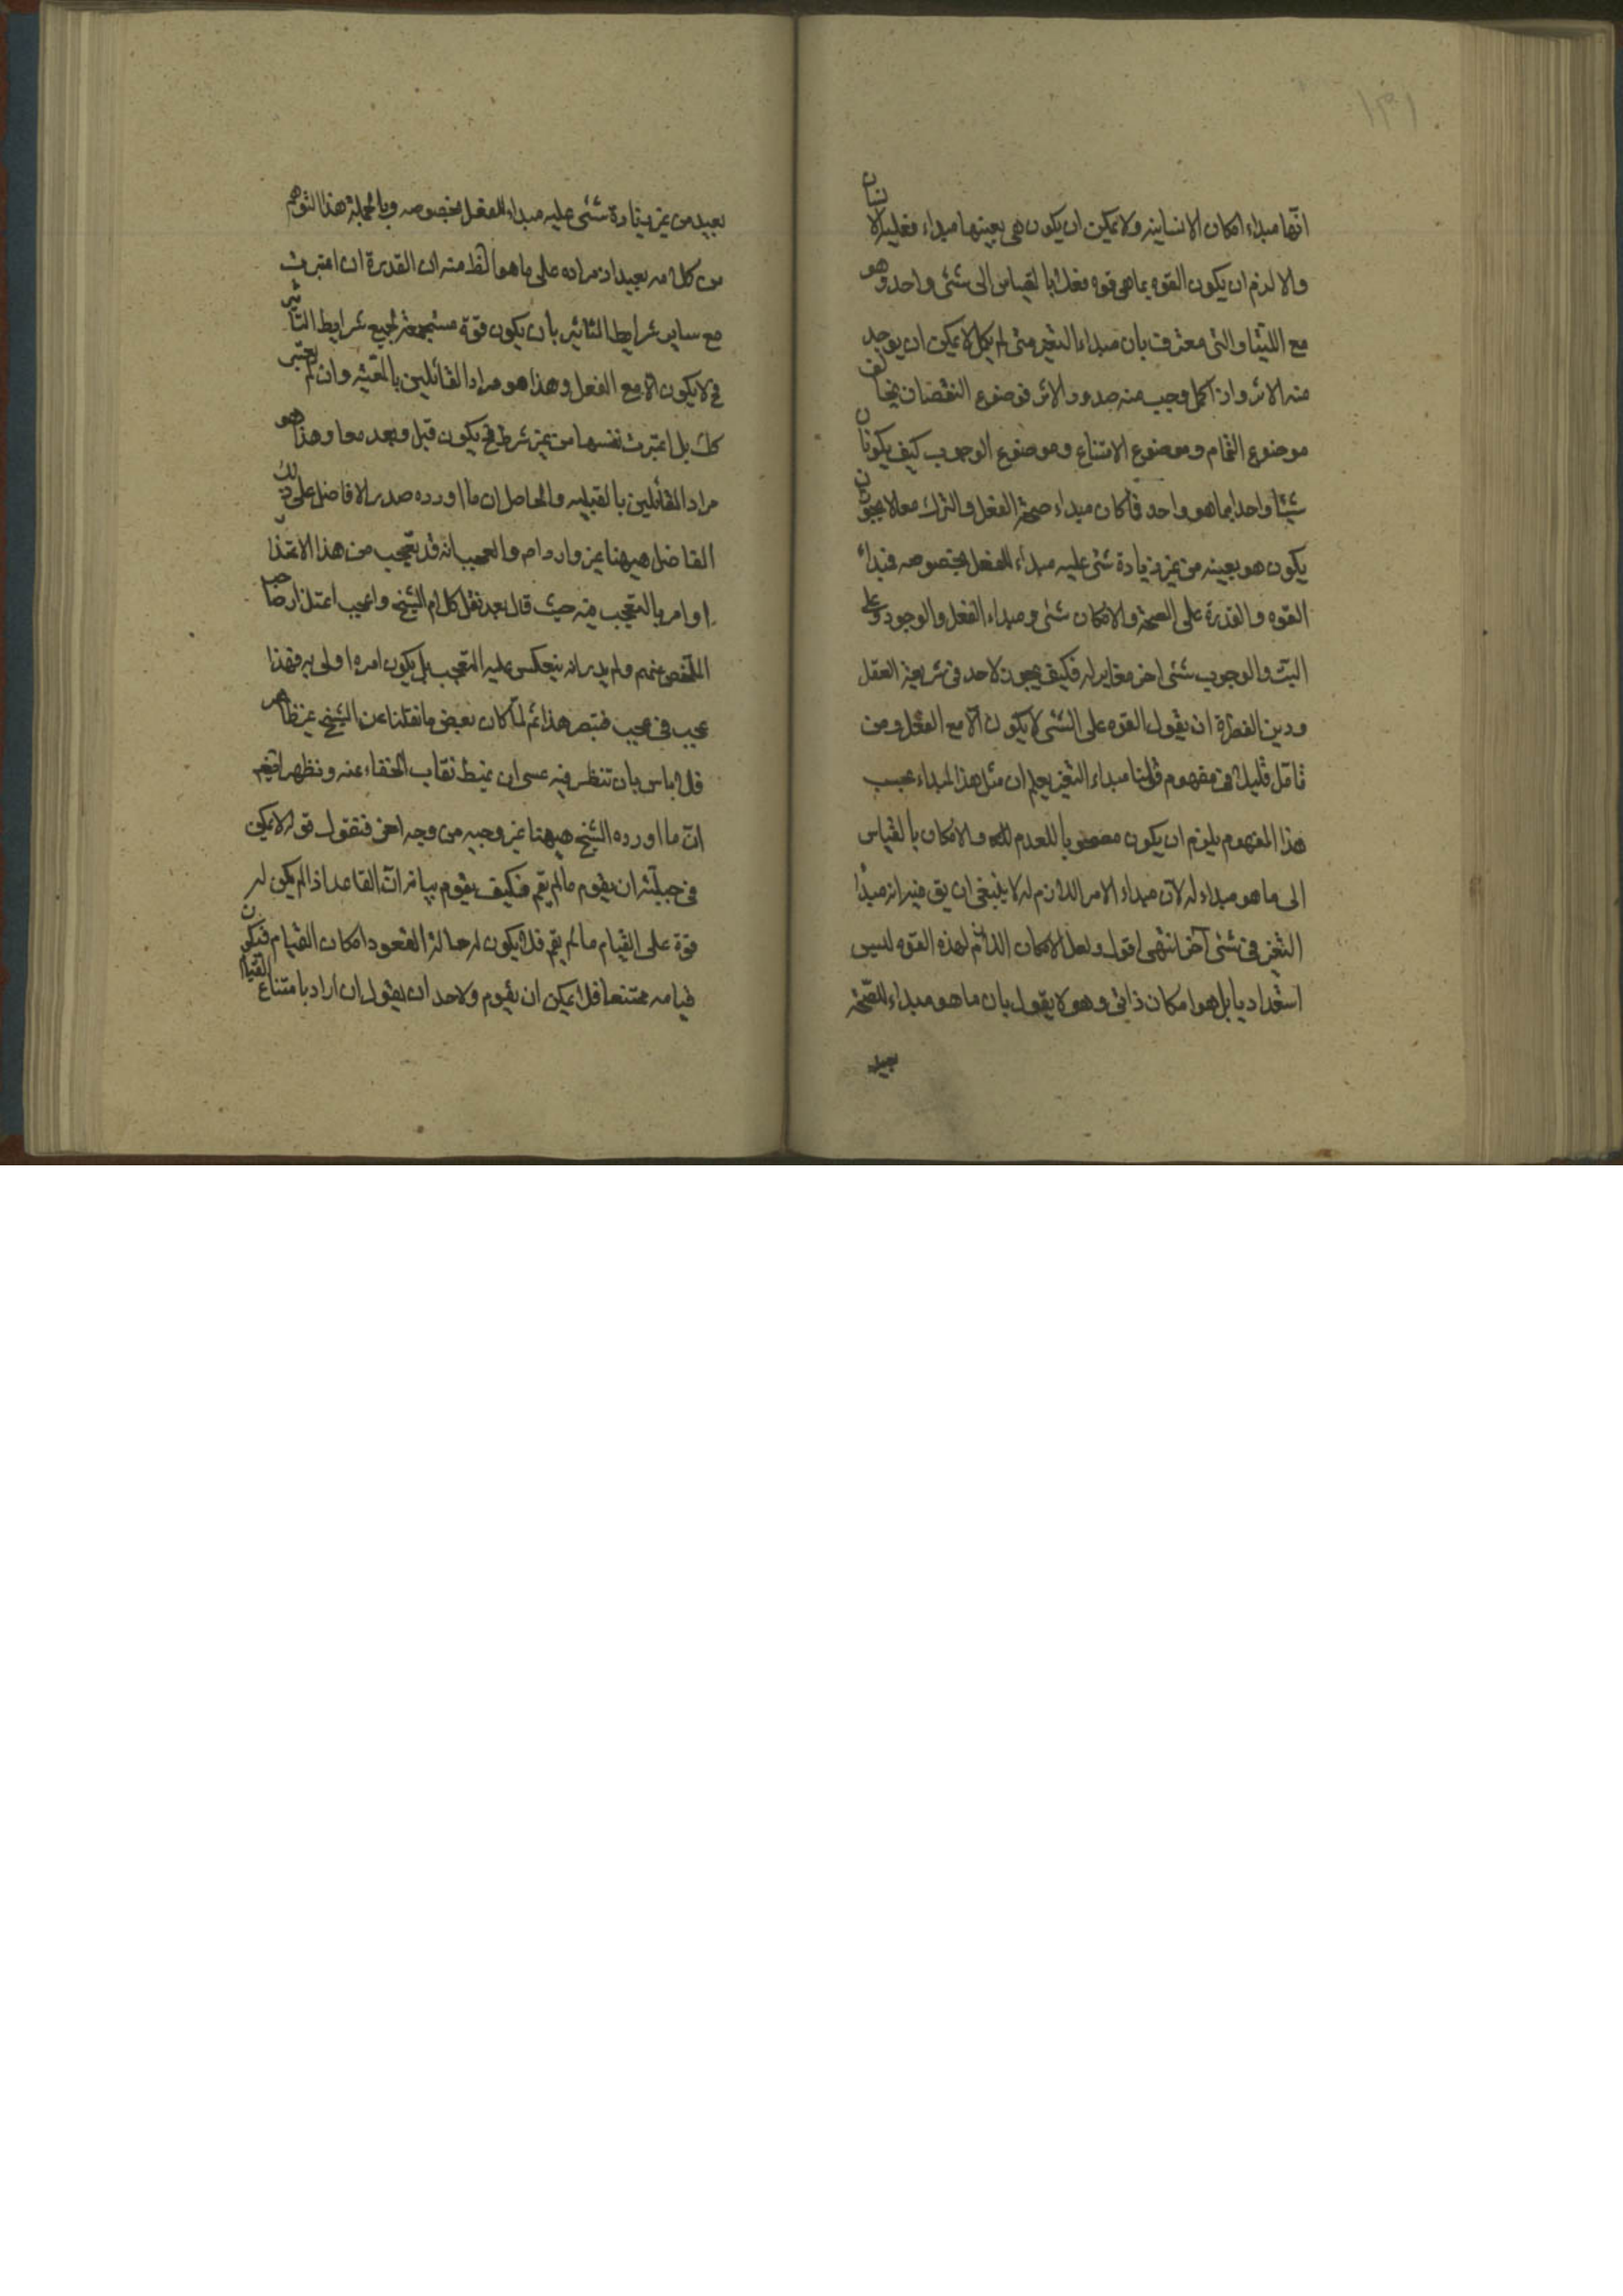 ۱۳۱
انّها مبداء امكان الانسانيه ولا يمكن ان يكون هي بعينها مبداء فعليه الانسان
والا لزم ان يكون القوه بما هي قوه فعلا بالقياس الى شئ واحد وهو
مع اللتيا والتي معترف بان مبداء التغير متى لم يكمل لا يمكن ان يوجد
منه الاثر واذا كمل وجب منه صدور الاثر فوضوع النقصان يخالف
موضوع التمام وموضوع الامتناع وموضوع الوجوب كيف يكونان
شيئا واحدا بما هو واحد فاكان مبداء صحة الفعل والترك معا لا يجوز ان
يكون هو بعينه من غير زيادة شئ عليه مبداء للفعل بخصوصه فبداء
القوه والقدرة على الصحة والامكان شئ ومبداء الفعل والوجود وعلى
البت والوجوب شئ اخر مغاير له فكيف يجوز لاحد في شريعة العقل
ودين الفطرة ان يقول القوه على الشئ لا يكون الا مع الفعل ومن
تامّل قليلا في مفهوم قولنا مبداء التغير يعلم ان مثل هذا المبداء بحسب
هذا المفهوم يلزم ان يكون مصحوبا للعدم والامكان بالقياس
الى ما هو مبداء له لان مبداء الامر اللازم له لا ينبغي ان يق فيه انه مبداء
التغير في شئ اخر انتهى اقول ولعل الامكان اللازم لهذه القوه ليس
استعداديا بل هو امكان ذاتي وهو لا يقول بان ما هو مبداء للصحة
بعيد
بعيد من غير زيادة شئ عليه مبداء للفعل بخصوصه وبالجملة هذا التوهم
من كلامه بعيد اذ مراده على ما هو الظ منه ان القدرة ان اعتبرت
مع ساير شرايط التاثير بان يكون قوة مستجمعة لجميع شرايط التاثير
فح لا يكون الا مع الفعل وهذا هو مراد القائلين بالمعيّه وان لم يعتبر
كك بل اعتبرت نفسها من غير شرط فح يكون قبل وبعد معا وهذا هو
مراد القائلين بالقبليه والحاصل ان ما اورده صدر الافاضل على ذلك
الفاضل هيهنا غير وارد ام والعجب انه قد يتعجب من هذا الاعتذار
او امر بالتعجب منه حيث قال بعد نقل كلام الشيخ واعجب اعتذار صاحب
الملخص عنهم ولم يدر انه ينعكس عليه التعجب بل يكون امره اولى به فهذا
عجيب في عجيب فتبصر هذا ثم لمّا كان بعض ما نقلنا عن الشيخ غير ظاهر
فلا باس بان تنظر فيه عسى ان يميط نقاب الخفاء عنه ونظهر
انّ ما اورده الشيخ هيهنا غير وجيه من وجه اخر فنقول قوله لا يمكن
في جبلّته ان يقوم ما لم يقم فكيف يقوم بيانه انّ القاعد اذا لم يكن له
قوة على القيام ما لم يقم فلا يكون له حالة القعود امكان القيام فيكون
قيامه ممتنعا فلا يمكن ان يقوم ولاحد ان يقول ان اراد بامتناع القيام